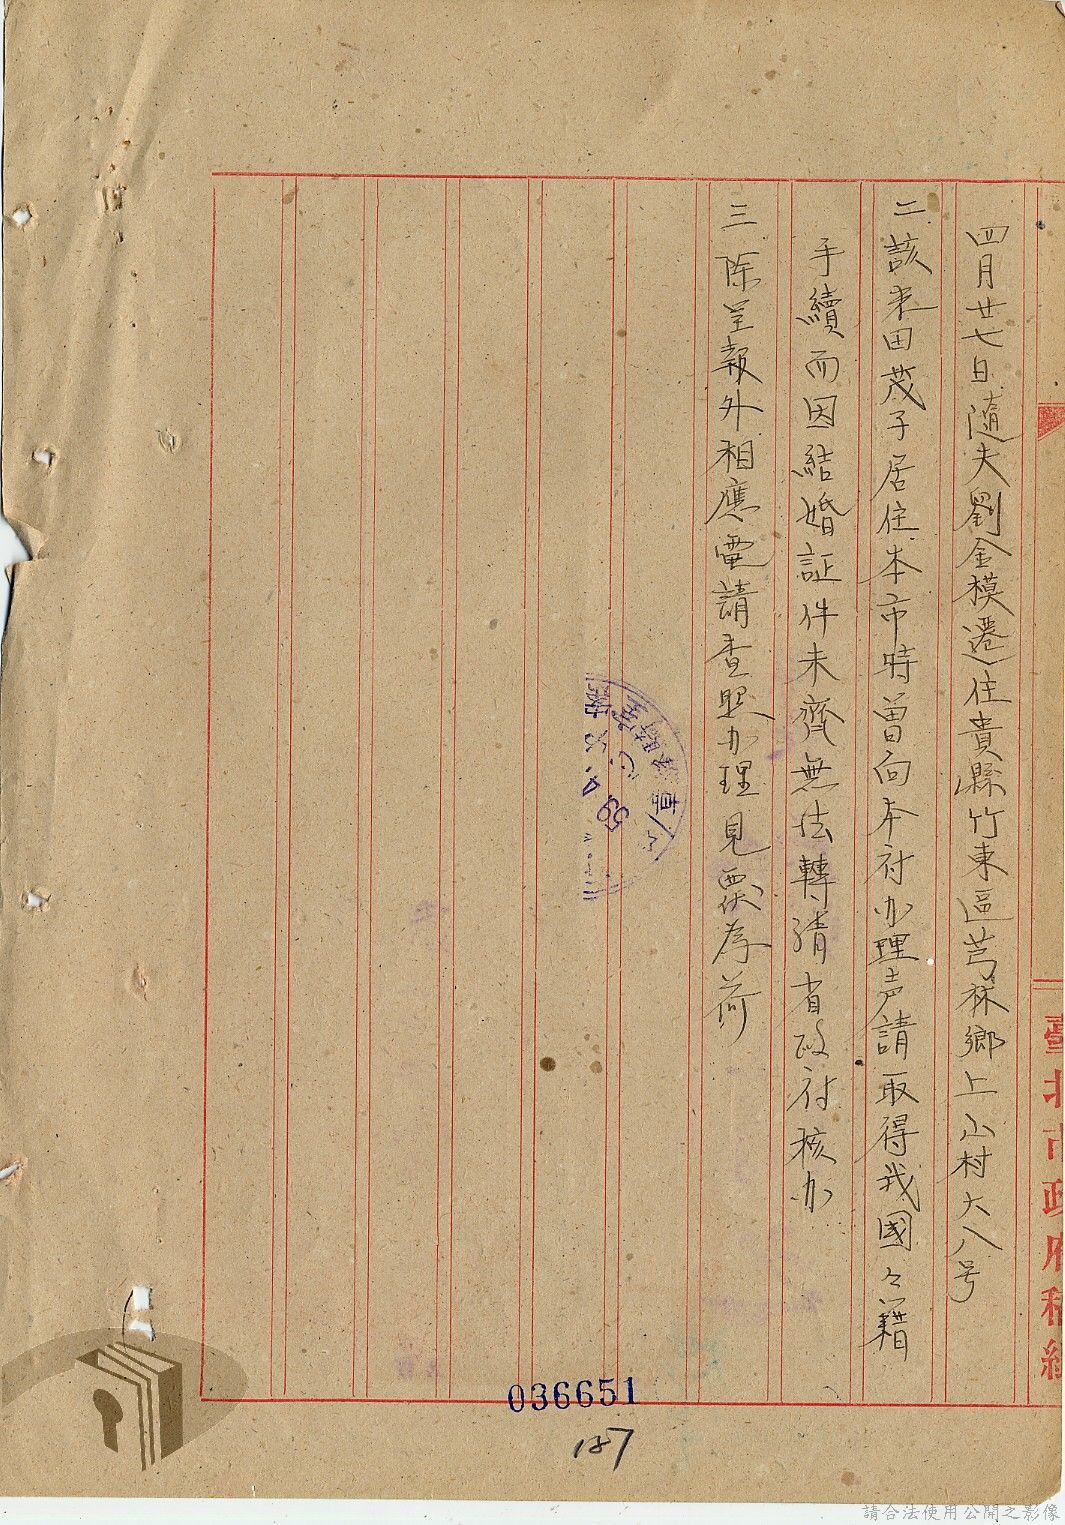 四月廿七日隨夫劉金模遷住貴縣竹東區芎林鄉上山村大八号
二該米田茂子居住本市時曾向本府办理声請取得我國々籍
手續而因結婚証件未齊無法轉請省政府核办
三除呈報外相應電請查照办理見覆為荷
臺北市政府稿紙
59
036651
127
請合法使用公開之影像